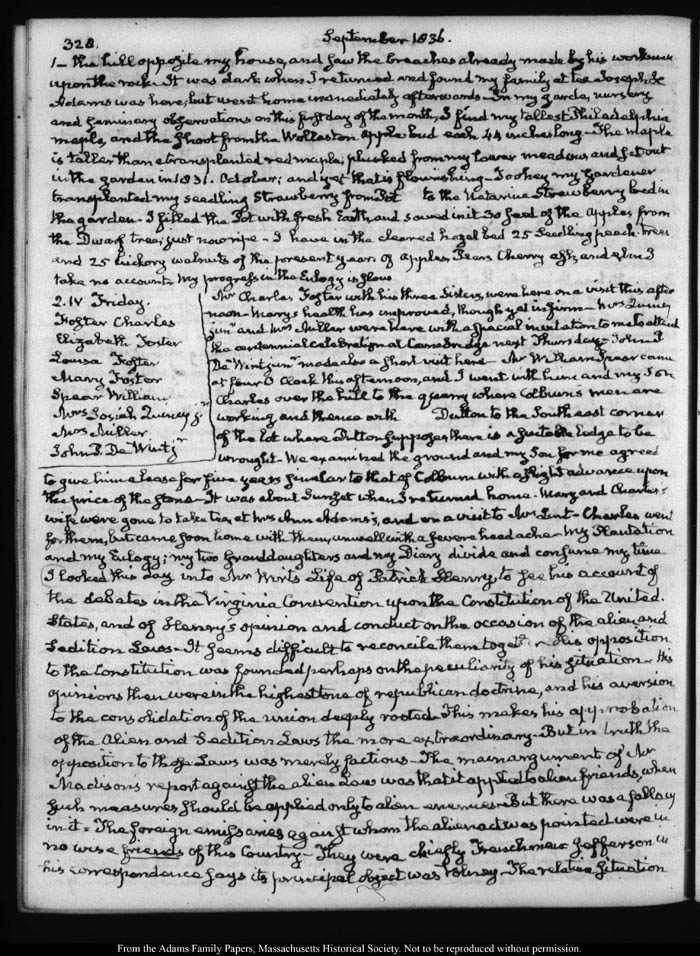 328.
September 1836.
1- the hill opposite my house, and saw the breaches already made by his workmen
upon the rock. It was dark when I returned and found my family at tea Joseph H.
Adams was here, but went home immediately afterwards. In my garden, nursery
and seminary observations on this first day of the month, I find my tallest Philadelphia
maple, and the shoot from the Wollaston Apple bud each 44 inches long. The maple
is taller than a transplanted red maple, plucked from my lower meadow and set out
in the garden in 1831. October; and yet that is flourishing. Toohey my gardener
transplanted my seedling Strawberry from Pot to the Strawberry bed in
the garden. I filled the Pot with fresh Earth and sowed in it 30 seed of the Apples from
the Dwarf tree; just now ripe. I have in the cleared hazel bed 25 Seedling peach trees
and 25 hickory walnuts of the present year. of apples, Pears Cherry ash, and elm I
take no account. My progress in the Eulogy is slow
2. IV Friday.
Foster Charles
Elizabeth Foster
Louisa Foster
Mary Foster
Spear William
Mrs Josiah Quincy jr
Mrs Miller
John P. De Wint jr
Mr Charles Foster with his three Sisters, were here on a visit this after
noon. Mary's health has improved, though yet infirm. Mrs Quincy
junr and Mrs Miller were here with a special invitation to me to attend
the centennial celebration at Cambridge next Thursday. John P
De Wint junr made also a short visit here. Mr William Spear came
at four O'Clock this afternoon, and I went with him and my Son
Charles over the hill to the quarry where Colburn's men are
working and thence with Dutton to the South east corner
of the lot where Dutton supposes there is a suitable Ledge to be
wrought. We examined the ground and my Son for me agreed
to give him a Lease for five years similar to that of Colburn with a slight advance upon
the price of the stone. It was about Sunset when I returned home. Mary and Charles's
wife were gone to take tea, at Mrs Ann Adams's, and on a visit to Mrs Lunt. Charles went
for them, but came soon home with them, unwell with a severe head ache. My Plantation
and my Eulogy; my two Granddaughters and my Diary divide and consume my time
I looked this day into Mr Wirt's Life of Patrick Henry, to see his account of
the debates in the Virginia Convention upon the Constitution of the United.
States, and of Henry's opinion and conduct on the occasion of the alien, and
Sedition Laws. It seems difficult to reconcile them together. His opposition
to the Constitution was founded perhaps on the peculiarity of his situation. His
opinions then were in the highest tone of republican doctrine, and his aversion
to the consolidation of the union deeply rooted. This makes his approbation
of the Alien and Sedition Laws the more extraordinary. But in truth the
opposition to those Laws was merely factious. The main argument of Mr
Madison's report against the alien Law was that it applied to alien friends, when
such measures should be applied only to alien enemies. But there was a fallacy
in it. The foreign emissaries against whom the alien act was pointed were in
no wise friends of this Country. They were chiefly Frenchmen Jefferson in
his correspondence says its principal object was Volney. The relative situation
From the Adams Family Papers, Massachusetts Historical Society. Not to be reproduced without permission.